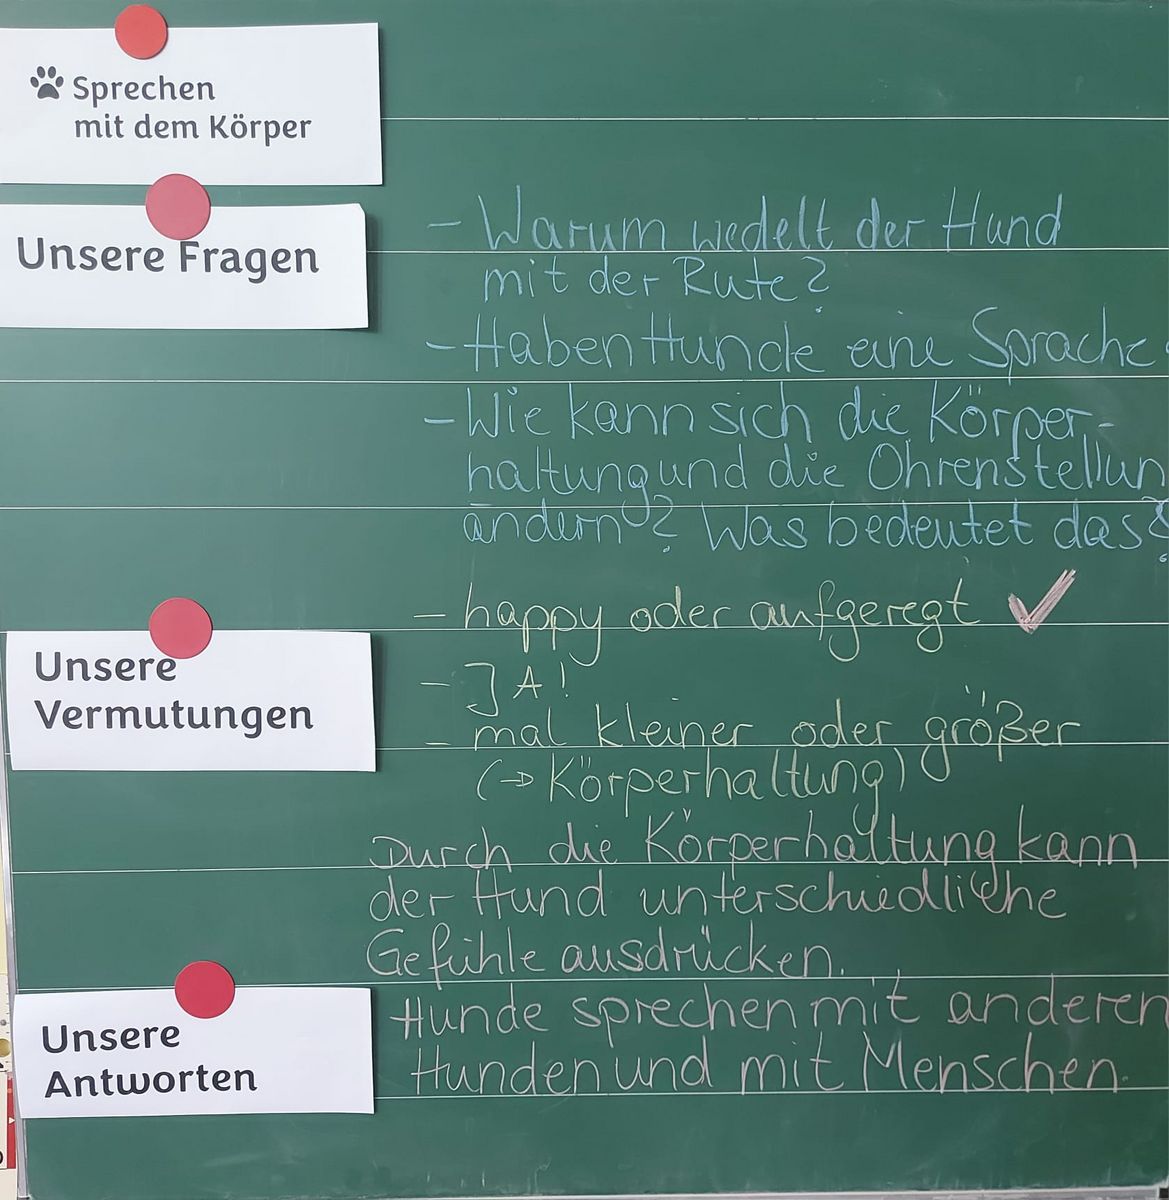 Sprechen
mit dem Körper
Unsere Fragen
- Warum wedelt der Hund
mit der Rute?
- Haben Hunde eine Sprache
- Wie kann sich die Körper-
haltung und die Ohrenstellun
ändern? Was bedeutet das?
Unsere
Vermutungen
- happy oder aufgeregt ✓
- JA!
- mal kleiner oder größer
(→ Körperhaltung)
Durch die Körperhaltung kann
der Hund unterschiedliche
Gefühle ausdrücken.
Unsere
Antworten
Hunde sprechen mit anderen
Hunden und mit Menschen.